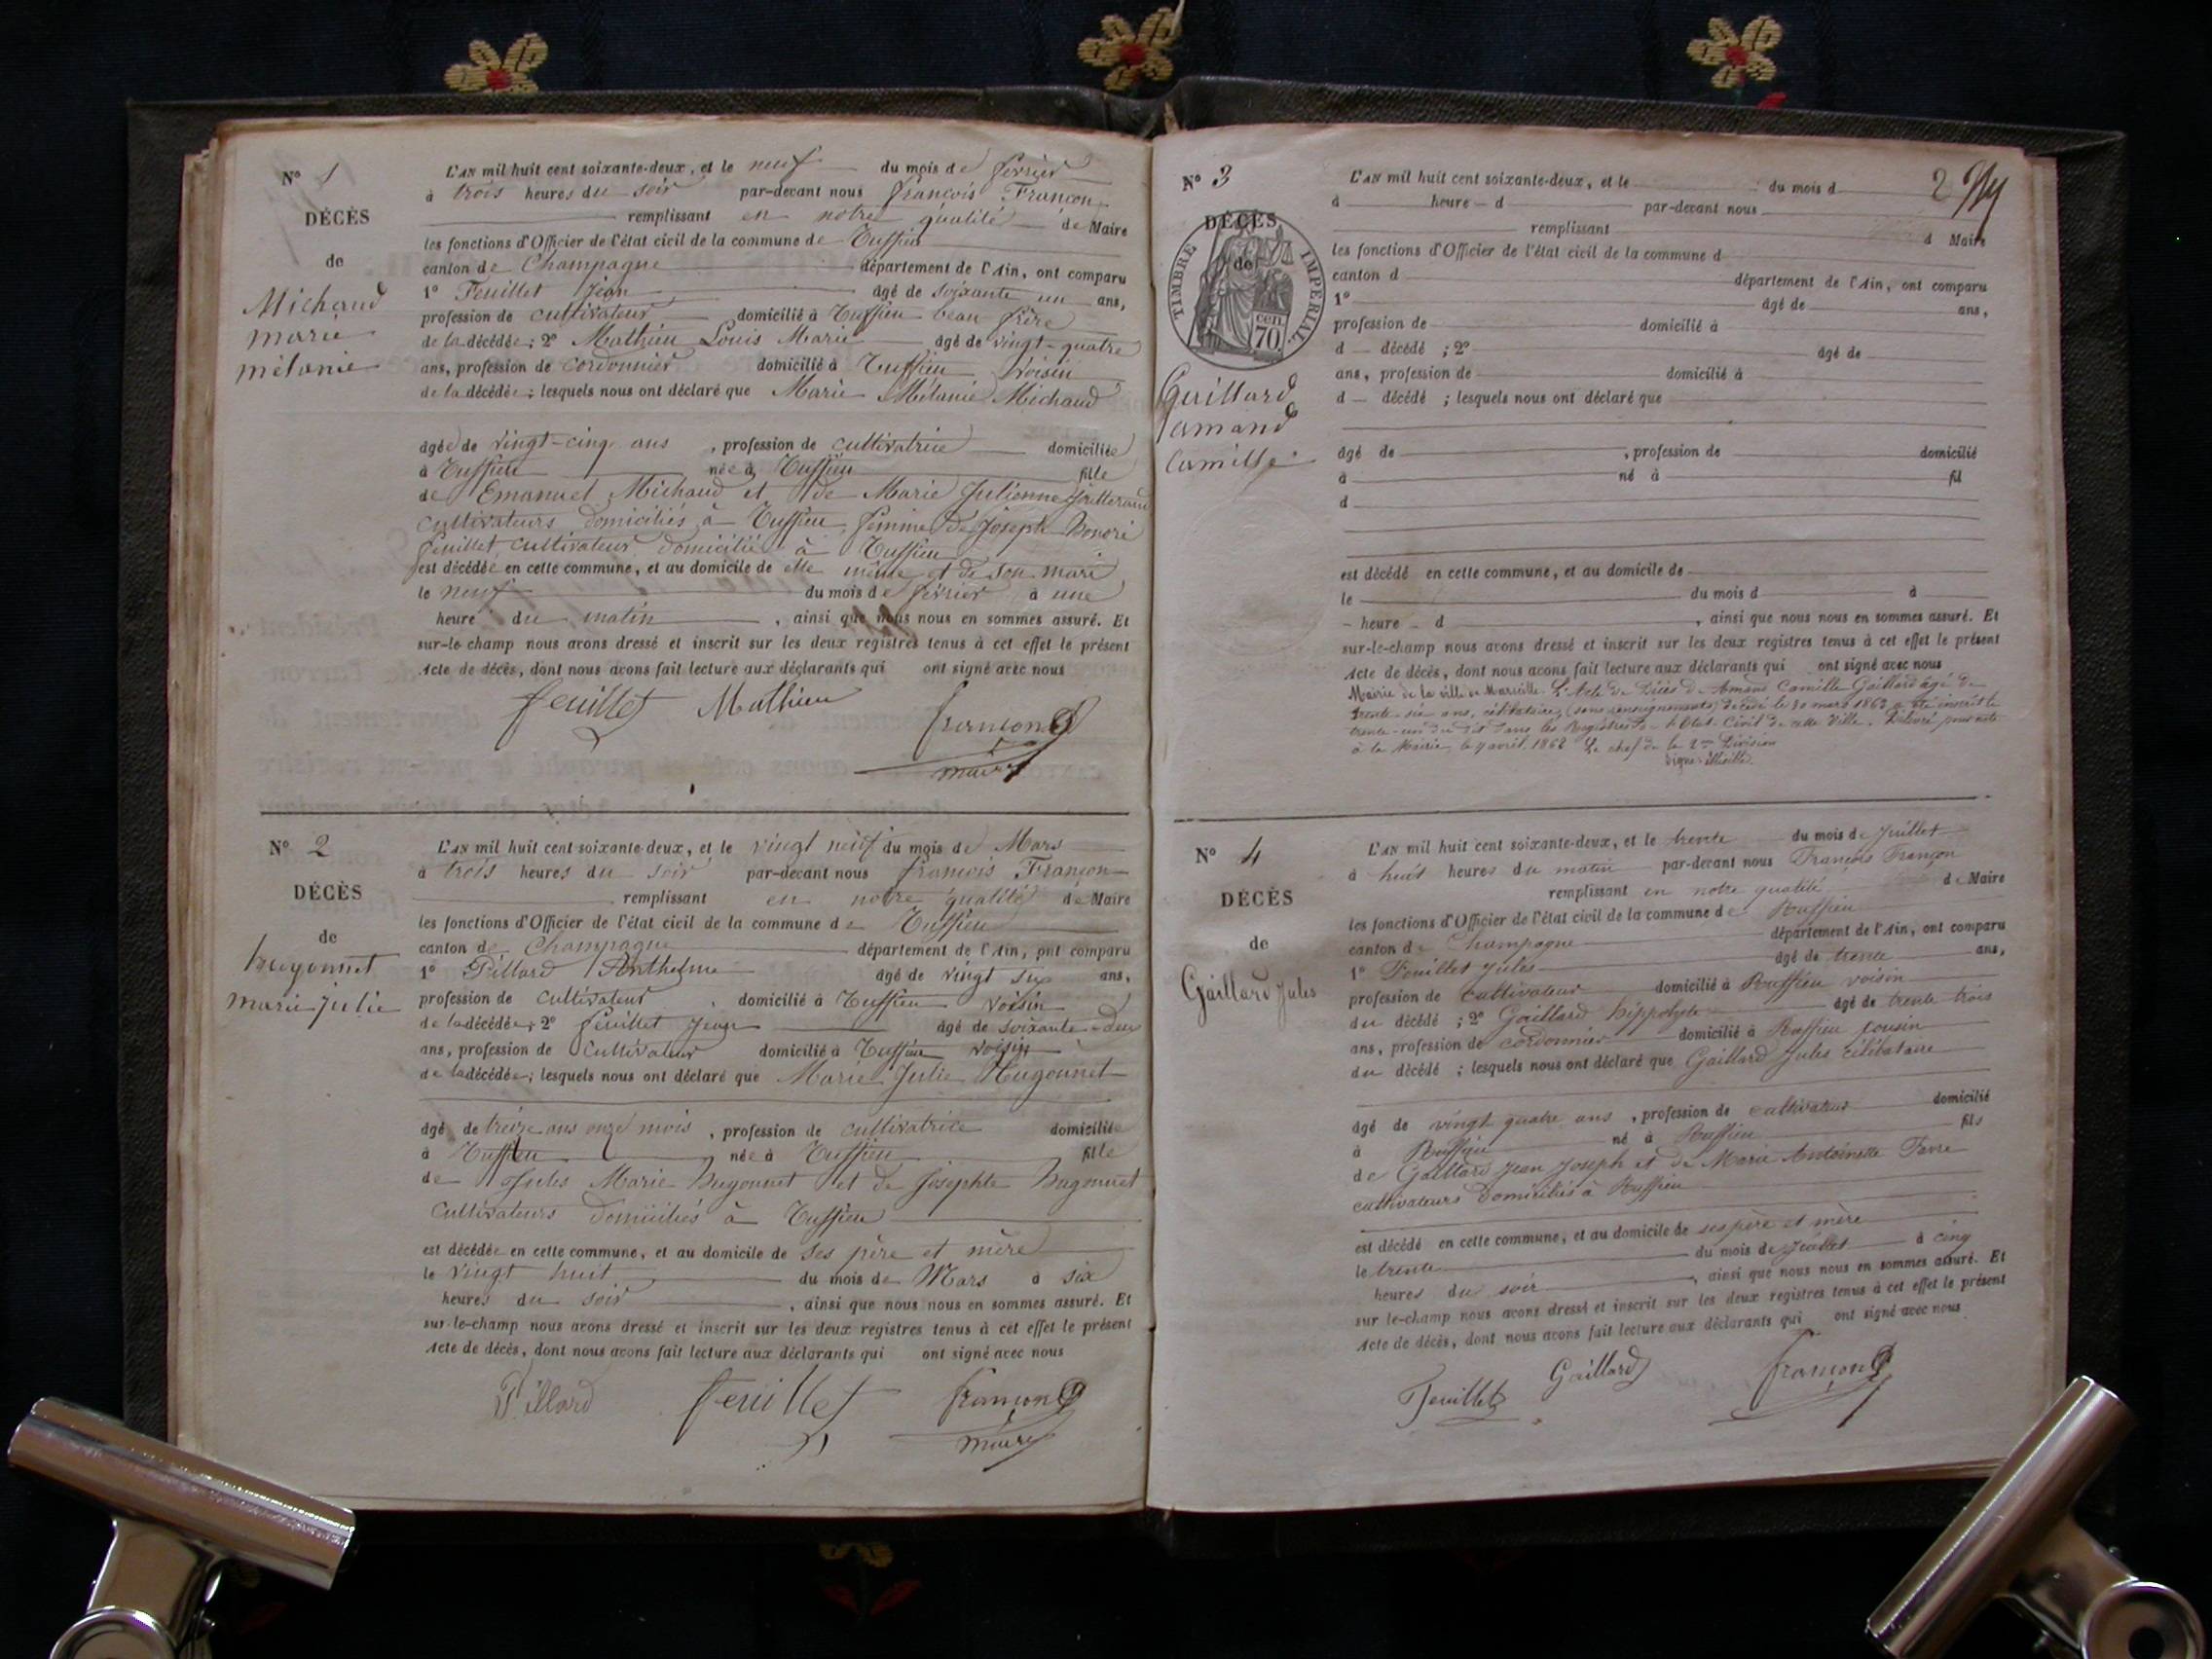 N° 1
DÉCÈS
de
Michaud
marie
mélanie
L'AN mil huit cent soixante-deux, et le neuf du mois de février
à trois heures du soir par-devant nous françois Françon
remplissant en notre qualité de Maire
les fonctions d'Officier de l'état civil de la commune de Ruffieu
canton de Champagne département de l'Ain, ont comparu
1° Feuillet Jean âgé de soixante un ans,
profession de cultivateur domicilié à Ruffieu beau frère
de la décédée; 2° Mathieu Louis Marie âgé de vingt-quatre
ans, profession de cordonnier domicilié à Ruffieu voisin
de la décédée; lesquels nous ont déclaré que Marie Mélanie Michaud
âgée de vingt-cinq ans, profession de cultivatrice domiciliée
à Ruffieu née à Ruffieu fille
de Emanuel Michaud et de Marie Julienne
cultivateurs domiciliés à Ruffieu femme de Joseph honoré
feuillet cultivateur domicilié à Ruffieu
est décédée en cette commune, et au domicile de elle même et de son mari
le neuf du mois de février à une
heure du matin, ainsi que nous nous en sommes assuré. Et
sur-le-champ nous avons dressé et inscrit sur les deux registres tenus à cet effet le présent
Acte de décès, dont nous avons fait lecture aux déclarants qui ont signé avec nous
feuillet Mathieu françon
maire
N° 2
DÉCÈS
de
hugonnet
marie julie
L'AN mil huit cent soixante-deux, et le vingt neuf du mois de Mars
à trois heures du soir par-devant nous françois Françon
remplissant en notre qualité de Maire
les fonctions d'Officier de l'état civil de la commune de Ruffieu
canton de Champagne département de l'Ain, ont comparu
1° Pillard Anthelme âgé de vingt six ans,
profession de cultivateur, domicilié à Ruffieu voisin
de la décédée; 2° feuillet Jean âgé de soixante-deux
ans, profession de cultivateur domicilié à Ruffieu voisin
de la décédée; lesquels nous ont déclaré que Marie Julie Hugonnet
âgé de treize ans onze mois, profession de cultivatrice domiciliée
à Ruffieu née à Ruffieu fille
de Jules Marie hugonnet et de Josephte hugonnet
cultivateurs domiciliés à Ruffieu
est décédée en cette commune, et au domicile de ses père et mère
le vingt huit du mois de Mars à six
heures du soir, ainsi que nous nous en sommes assuré. Et
sur-le-champ nous avons dressé et inscrit sur les deux registres tenus à cet effet le présent
Acte de décès, dont nous avons fait lecture aux déclarants qui ont signé avec nous
Pillard feuillet françon
maire
N° 3
DÉCÈS
de
TIMBRE IMPERIAL
cen.
70
Gaillard
amand
Camille
2
L'AN mil huit cent soixante-deux, et le du mois d
à heure d par-devant nous
remplissant d Maire
les fonctions d'Officier de l'état civil de la commune d
canton d département de l'Ain, ont comparu
1° âgé de ans,
profession de domicilié à
d décédé ; 2° âgé de
ans, profession de domicilié à
d décédé ; lesquels nous ont déclaré que
âgé de , profession de domicilié
à né à fil
d
est décédé en cette commune, et au domicile de
le du mois d à
heure d , ainsi que nous nous en sommes assuré. Et
sur-le-champ nous avons dressé et inscrit sur les deux registres tenus à cet effet le présent
Acte de décès, dont nous avons fait lecture aux déclarants qui ont signé avec nous
Mairie de la ville de Marseille. L'Acte de Décès de Amand Camille Gaillard âgé de
trente-six ans, célibataire, (sans renseignements) décédé le 30 mars 1862 a été inscrit le
trente-un du dit dans les Registres de l'Etat-Civil de cette Ville. Délivré pour note
à la Mairie, le 4 avril 1862 Le chef de la 2me Division
Signé
N° 4
DÉCÈS
de
Gaillard Jules
L'AN mil huit cent soixante-deux, et le trente du mois de Juillet
à huit heures du matin par-devant nous François Françon
remplissant en notre qualité de Maire
les fonctions d'Officier de l'état civil de la commune de Ruffieu
canton de Champagne département de l'Ain, ont comparu
1° Feuillet Jules âgé de trente ans,
profession de cultivateur domicilié à Ruffieu voisin
du décédé ; 2° Gaillard hippolyte âgé de trente trois
ans, profession de cordonnier domicilié à Ruffieu cousin
du décédé ; lesquels nous ont déclaré que Gaillard Jules célibataire
âgé de vingt quatre ans, profession de cultivateur domicilié
à Ruffieu né à Ruffieu fils
de Gaillard Jean Joseph et de Marie Antoinette Favre
cultivateurs domiciliés à Ruffieu
est décédé en cette commune, et au domicile de ses père et mère
le trente du mois de Juillet à cinq
heures du soir, ainsi que nous nous en sommes assuré. Et
sur le-champ nous avons dressé et inscrit sur les deux registres tenus à cet effet le présent
Acte de décès, dont nous avons fait lecture aux déclarants qui ont signé avec nous
Feuillet Gaillard françon